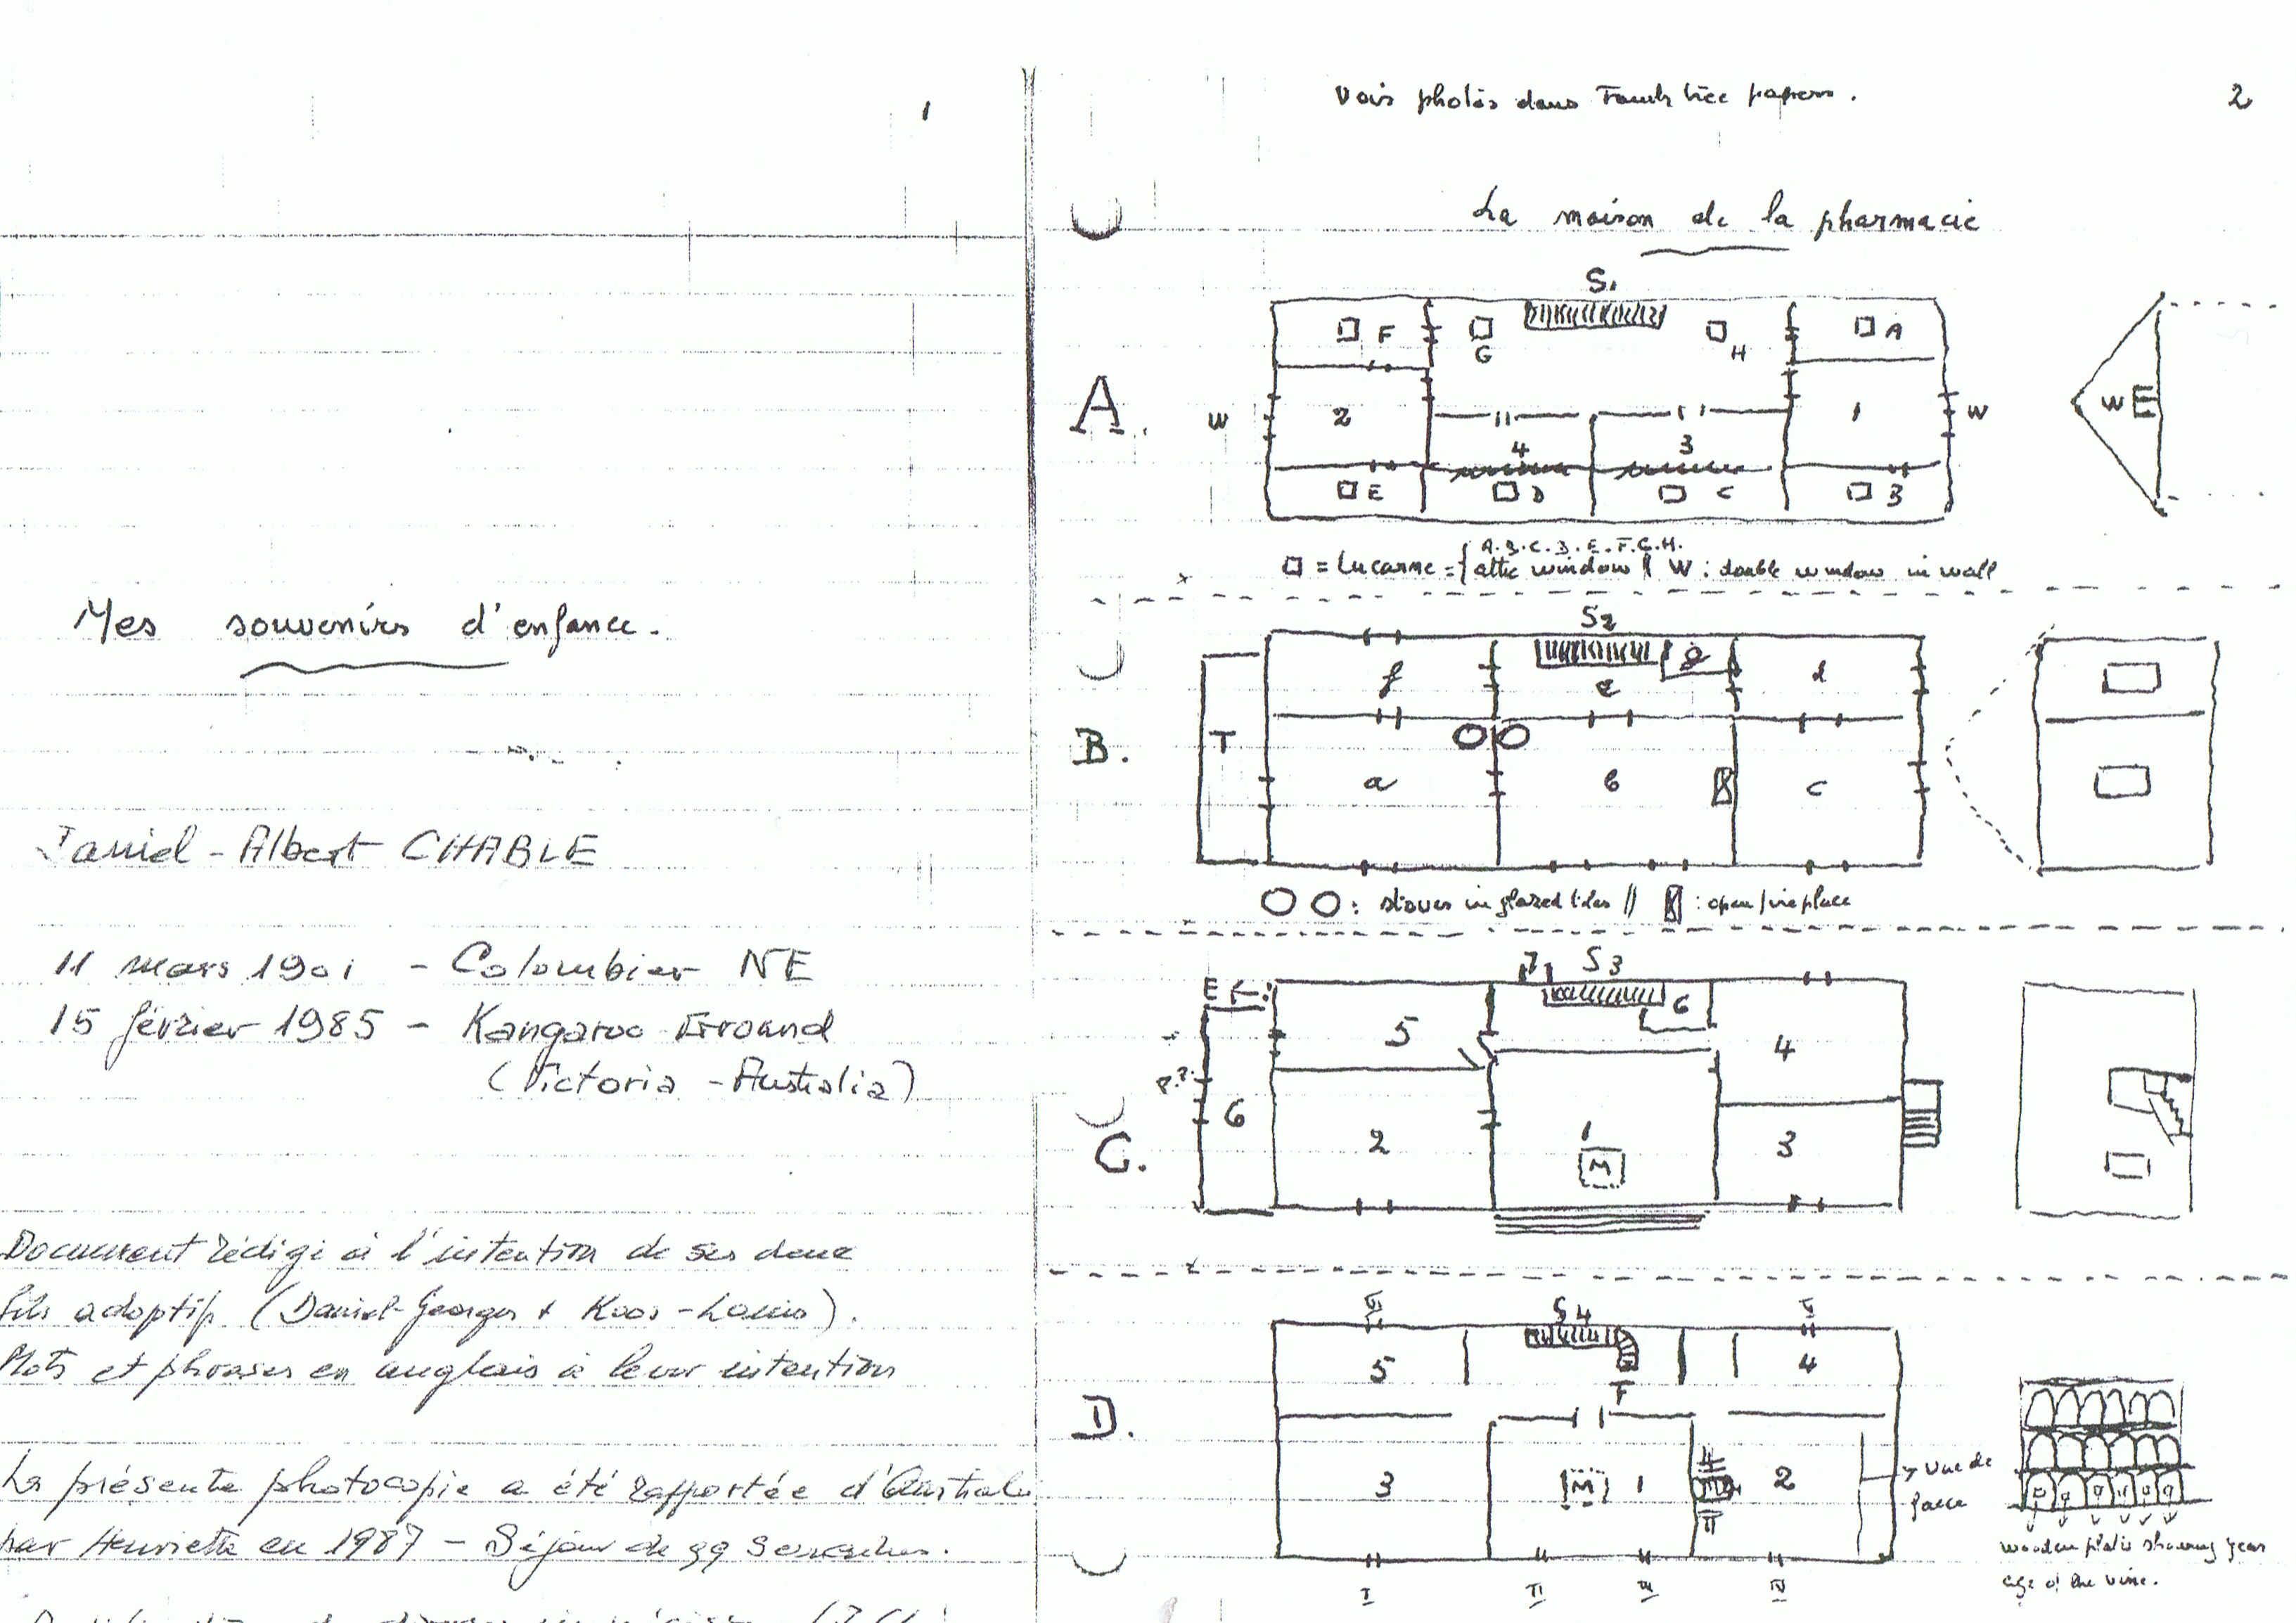 1
Mes souvenirs d'enfance.
Daniel - Albert CHABLE
11 mars 1901 - Colombier NE
15 février 1985 - Kangaroo Ground
(Victoria - Australia)
Document rédigé à l'intention de ses deux
fils adoptifs (Daniel-Georges + Koos-Louis).
Mots et phrases en anglais à leur intention
La présente photocopie a été rapportée d'Australie
par Henriette en 1987 - Séjour de semaines.
Voir photos dans Family tree papers.
2
La maison de la pharmacie
A.
S1
F G H A
W 2 4 3 1 W
E D C B
W E
□ = Lucarne = { A.B.C.D.E.F.G.H. attic window // W : double window in wall
B.
S2
f e g d
T a b c
O O : stoves in glazed tiles // : open fireplace
C.
E 7 S3
5 6 4
6 2 1 3
M
D.
VI S4 V
5 F 4
3 M 1 2
→ Vue de
face
I II III IV
wooden plates showing year
age of the wine.